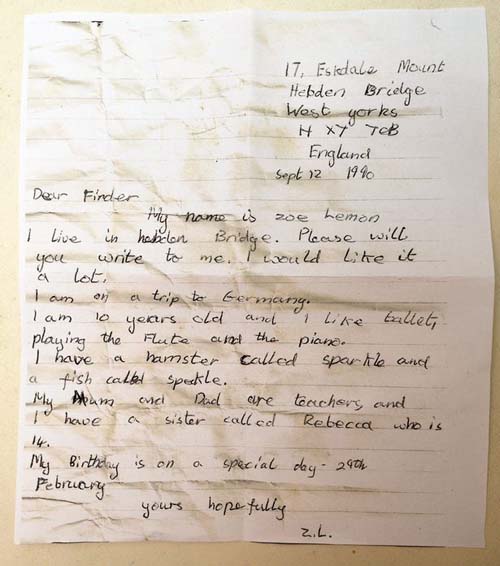 17, Eskdale Mount
Hebden Bridge
West yorks
H XY 7CB
England
Sept 12 1990
Dear Finder
My name is zoe Lemon
I live in hebden Bridge. Please will
you write to me. I would like it
a lot.
I am on a trip to Germany.
I am 10 years old and I like ballet,
playing the flute and the piano.
I have a hamster called sparkle and
a fish called speckle.
My Mum and Dad are teachers, and
I have a sister called Rebecca who is
14.
My Birthday is on a special day - 29th
February
yours hopefully
Z.L.